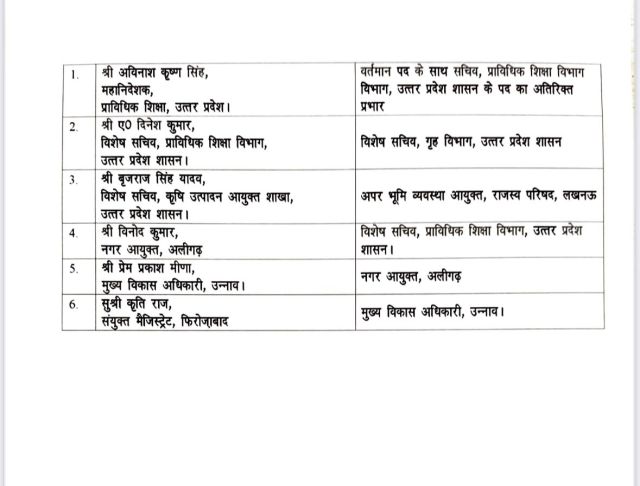 1.
श्री अविनाश कृष्ण सिंह,
महानिदेशक,
प्राविधिक शिक्षा, उत्तर प्रदेश।
वर्तमान पद के साथ सचिव, प्राविधिक शिक्षा विभाग
विभाग, उत्तर प्रदेश शासन के पद का अतिरिक्त
प्रभार
2.
श्री ए0 दिनेश कुमार,
विशेष सचिव, प्राविधिक शिक्षा विभाग,
उत्तर प्रदेश शासन।
विशेष सचिव, गृह विभाग, उत्तर प्रदेश शासन
3.
श्री बृजराज सिंह यादव,
विशेष सचिव, कृषि उत्पादन आयुक्त शाखा,
उत्तर प्रदेश शासन।
अपर भूमि व्यवस्था आयुक्त, राजस्व परिषद, लखनऊ
4.
श्री विनोद कुमार,
नगर आयुक्त, अलीगढ़
विशेष सचिव, प्राविधिक शिक्षा विभाग, उत्तर प्रदेश
शासन।
5.
श्री प्रेम प्रकाश मीणा,
मुख्य विकास अधिकारी, उन्नाव।
नगर आयुक्त, अलीगढ़
6.
सुश्री कृति राज,
संयुक्त मैजिस्ट्रेट, फिरोजाबाद
मुख्य विकास अधिकारी, उन्नाव।